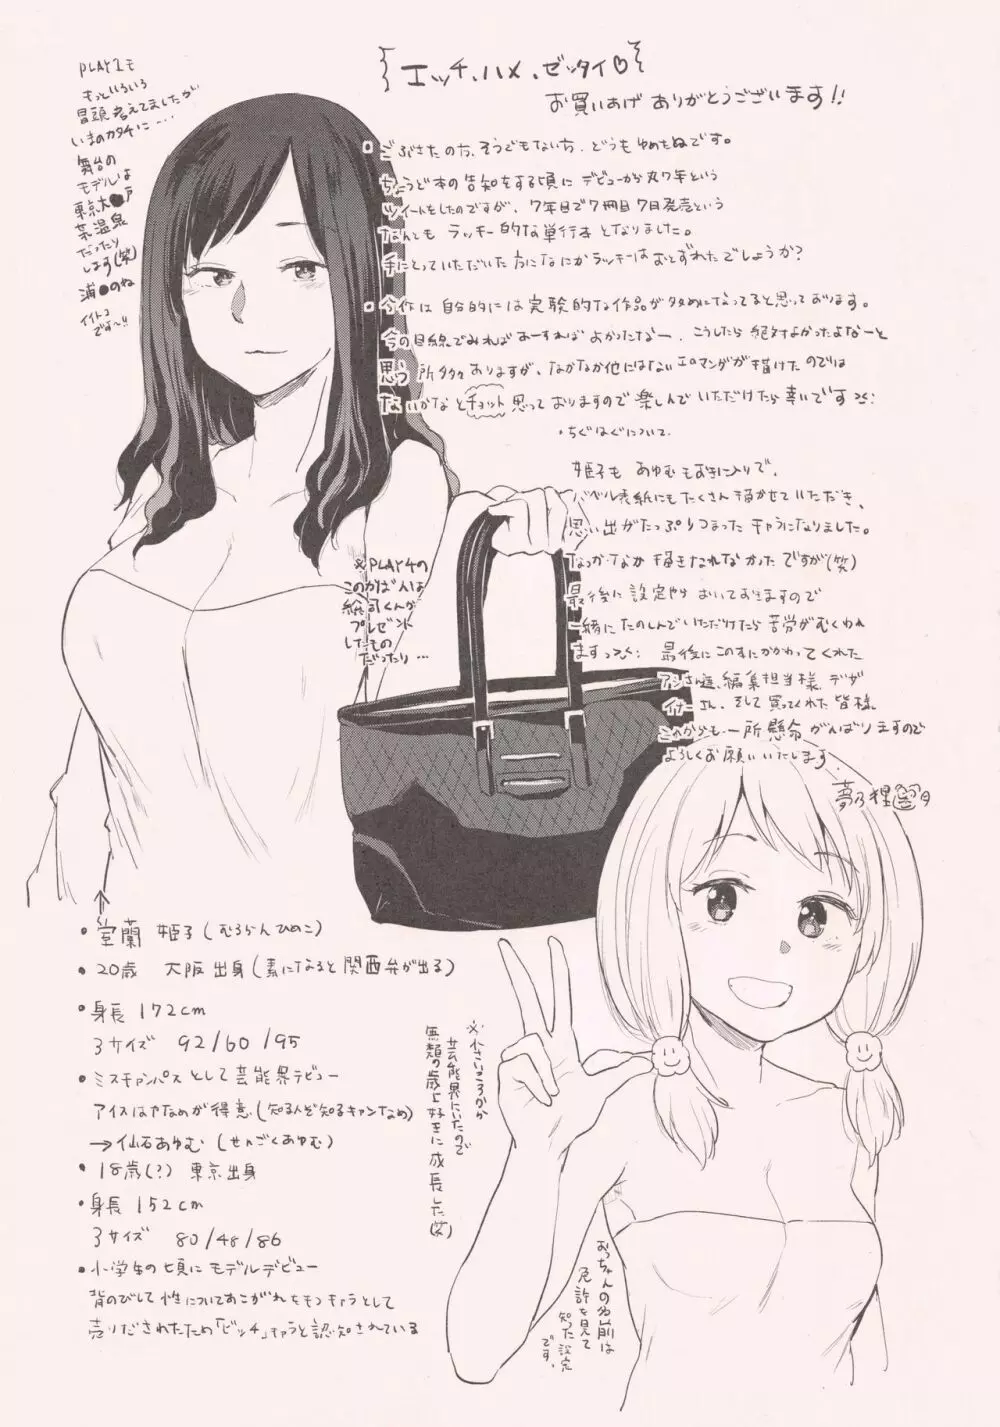 エッチ、ハメ、ゼッタイ♡
お買いあげ ありがとうございます!!
PLAY1も
もっといろいろ
冒頭考えてましたが
いまのカタチに…
舞台の
モデルは
東京大●戸
菜温泉
だったり
します(笑)
浦●のね
イイトコ
です〜!!
ごぶさたの方、そうでもない方、どうもゆめたぬです。
ちょうど本の告知をする頃にデビューから丸7年という
ツイートをしたのですが、7年目で7冊目7日発売という
なんとも ラッキー的な単行本となりました。
手にとっていただいた方になにかラッキーはおとずれたでしょうか?
今作は自分的には実験的な作品が多めになってると思っております。
今の目線でみればあーすればよかったなー、こうしたら絶対よかったよなーと
思う所多々ありますが、なかなか他にはないエロマンガが描けたのでは
ないかなとチョット思っておりますので楽しんでいただけたら幸いです
・ちぐはぐについて
姫子もあゆむもお気に入りで、
バベル表紙にもたくさん描かせていただき、
思い出がたっぷりつまったキャラになりました。
なっかなか描きなれなかったですが(笑)
最後に設定やら おいておきますので
一緒にたのしんでいただけたら苦労がむくわれ
ます 最後にこの本にかかわってくれた
アシさん達、編集担当様、デザ
イナーさん、そして買ってくれた皆様、
これからも一所懸命がんばりますので
よろしくお願いいたします
夢乃狸
※PLAY4の
このかばんは
総司くんが
プレゼント
したもの
だったり…
・室蘭 姫子(むろらんひめこ)
・20歳 大阪出身(素になると関西弁が出る)
・身長 172cm
3サイズ 92/60/95
・ミスキャンパスとして芸能界デビュー
アイスはやなめが得意(知る人ぞ知るキャンなめ)
→仙石あゆむ(せんごくあゆむ)
・18歳(?) 東京出身
・身長 152cm
3サイズ 80/48/86
・小学生の頃にモデルデビュー
背のびして性についてあこがれをもつキャラとして
売りだされたため「ビッチ」キャラと認知されている
※小さいころから
芸能界にいたので
無類の歳上好きに成長した(笑)
おっちゃんの名前は
免許を見て
知った設定
です。